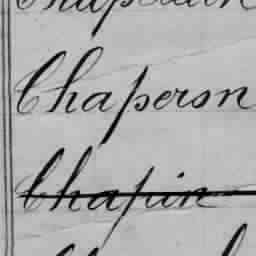 Chaperon
Chapin